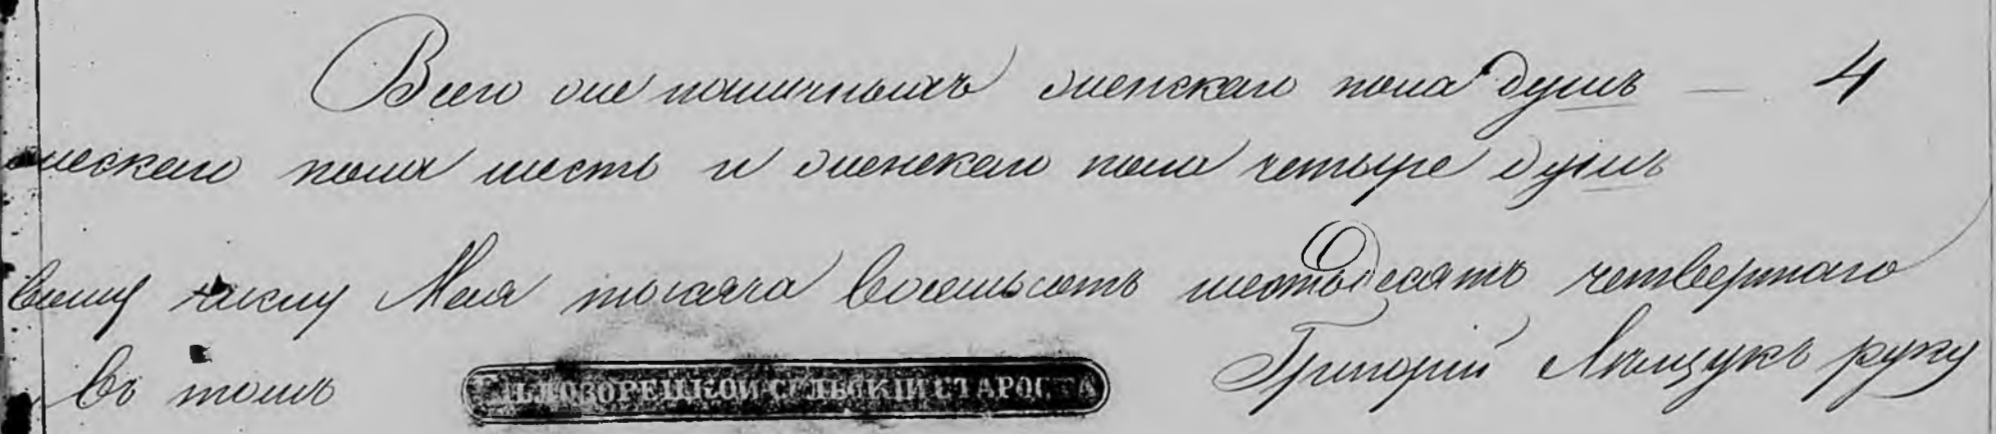 Всего же наличныхъ женскаго пола душъ — 4
мужескаго пола шесть и женскаго пола четыре душъ
числу Мая тысяча восемьсотъ шестьдесятъ четвертаго
въ томъ БѢЛОЗОРЕЦКОЙ СЕЛЬСКІЙ СТАРОСТА Григорій Мищукъ руку